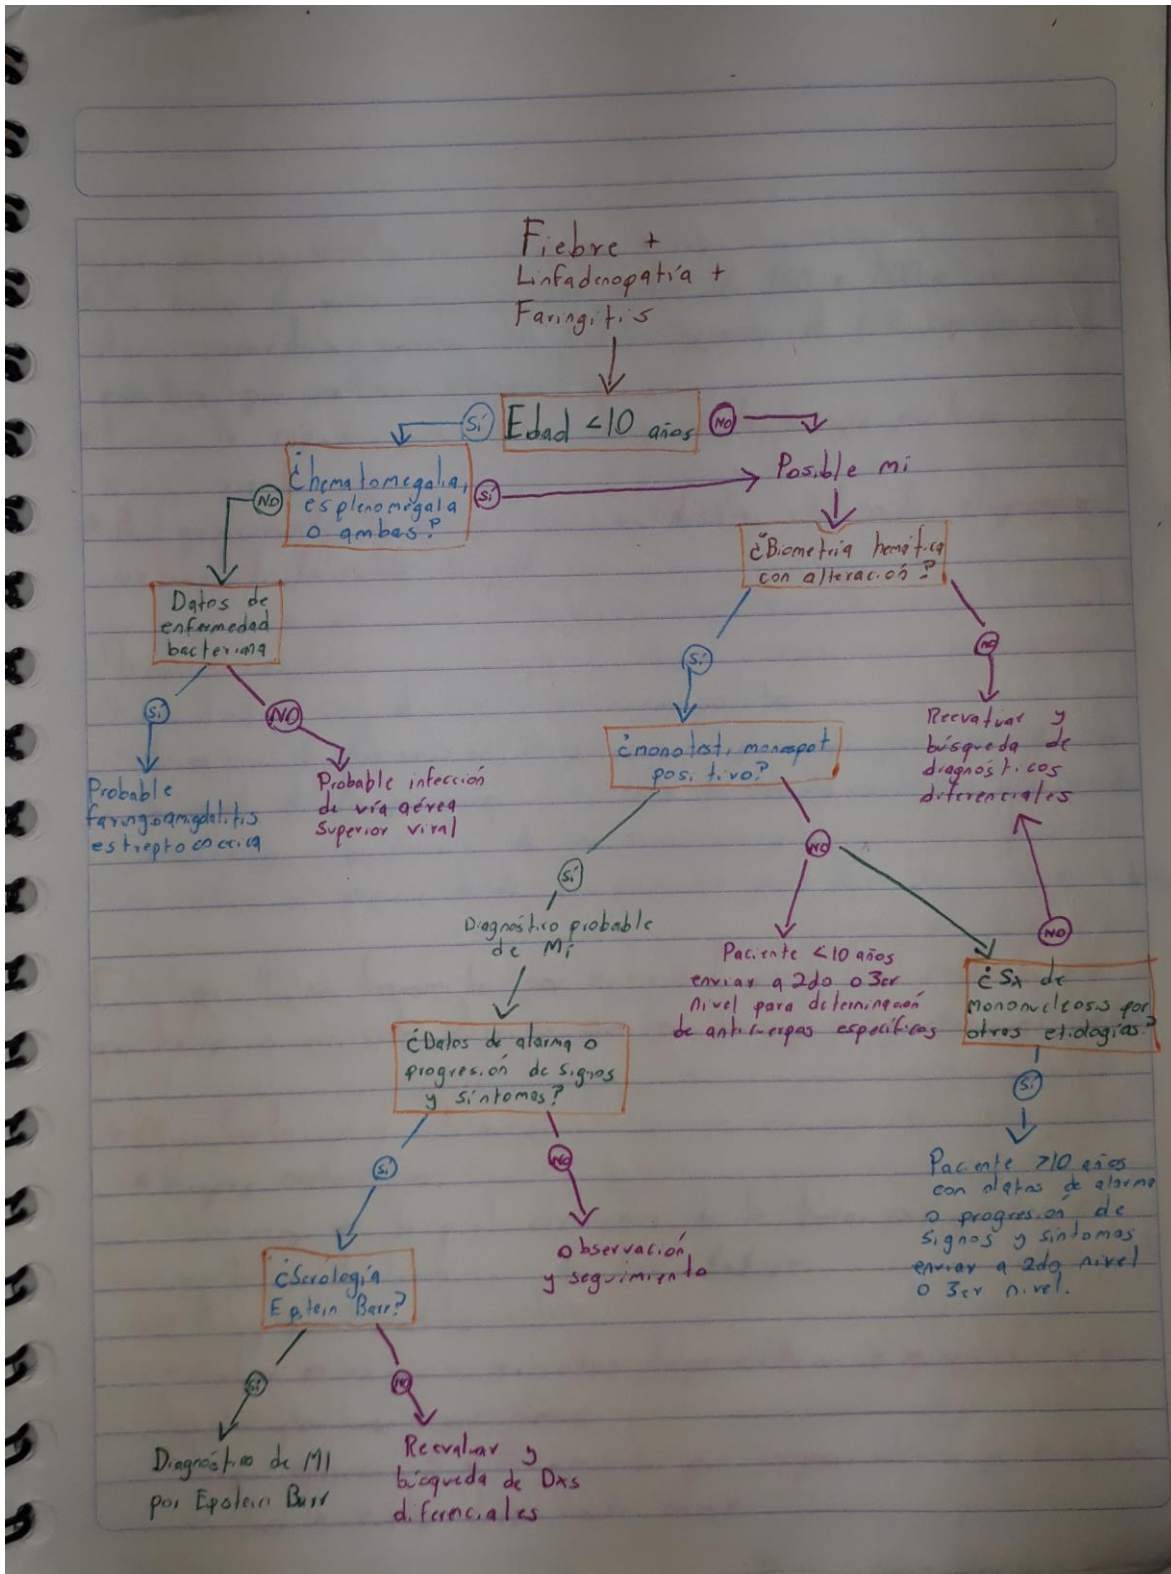 Fiebre +
Linfadenopatía +
Faringitis
Sí
Edad <10 años
NO
¿hematomegalia,
esplenomegala
o ambas?
NO
Sí
Posible mi
¿Biometría hemática
con alteración?
Datos de
enfermedad
bacteriana
Sí
NO
Sí
NO
Probable
faringoamigdalitis
estreptococcica
Probable infección
de vía aérea
superior viral
¿monotest, monospot
positivo?
Reevaluar y
búsqueda de
diagnósticos
diferenciales
Sí
NO
NO
Diagnóstico probable
de Mi
Paciente <10 años
enviar a 2do o 3er
nivel para determinación
de anticuerpos específicos
¿Sx de
mononucleosis por
otras etiologías?
¿Datos de alarma o
progresión de signos
y síntomas?
Sí
Sí
NO
Paciente >10 años
con datos de alarma
o progresión de
signos y síntomas
enviar a 2do nivel
o 3er nivel.
Observación
y seguimiento
¿Serología
Eptein Barr?
Sí
NO
Diagnóstico de MI
por Epstein Barr
Reevaluar y
búsqueda de Dxs
diferenciales